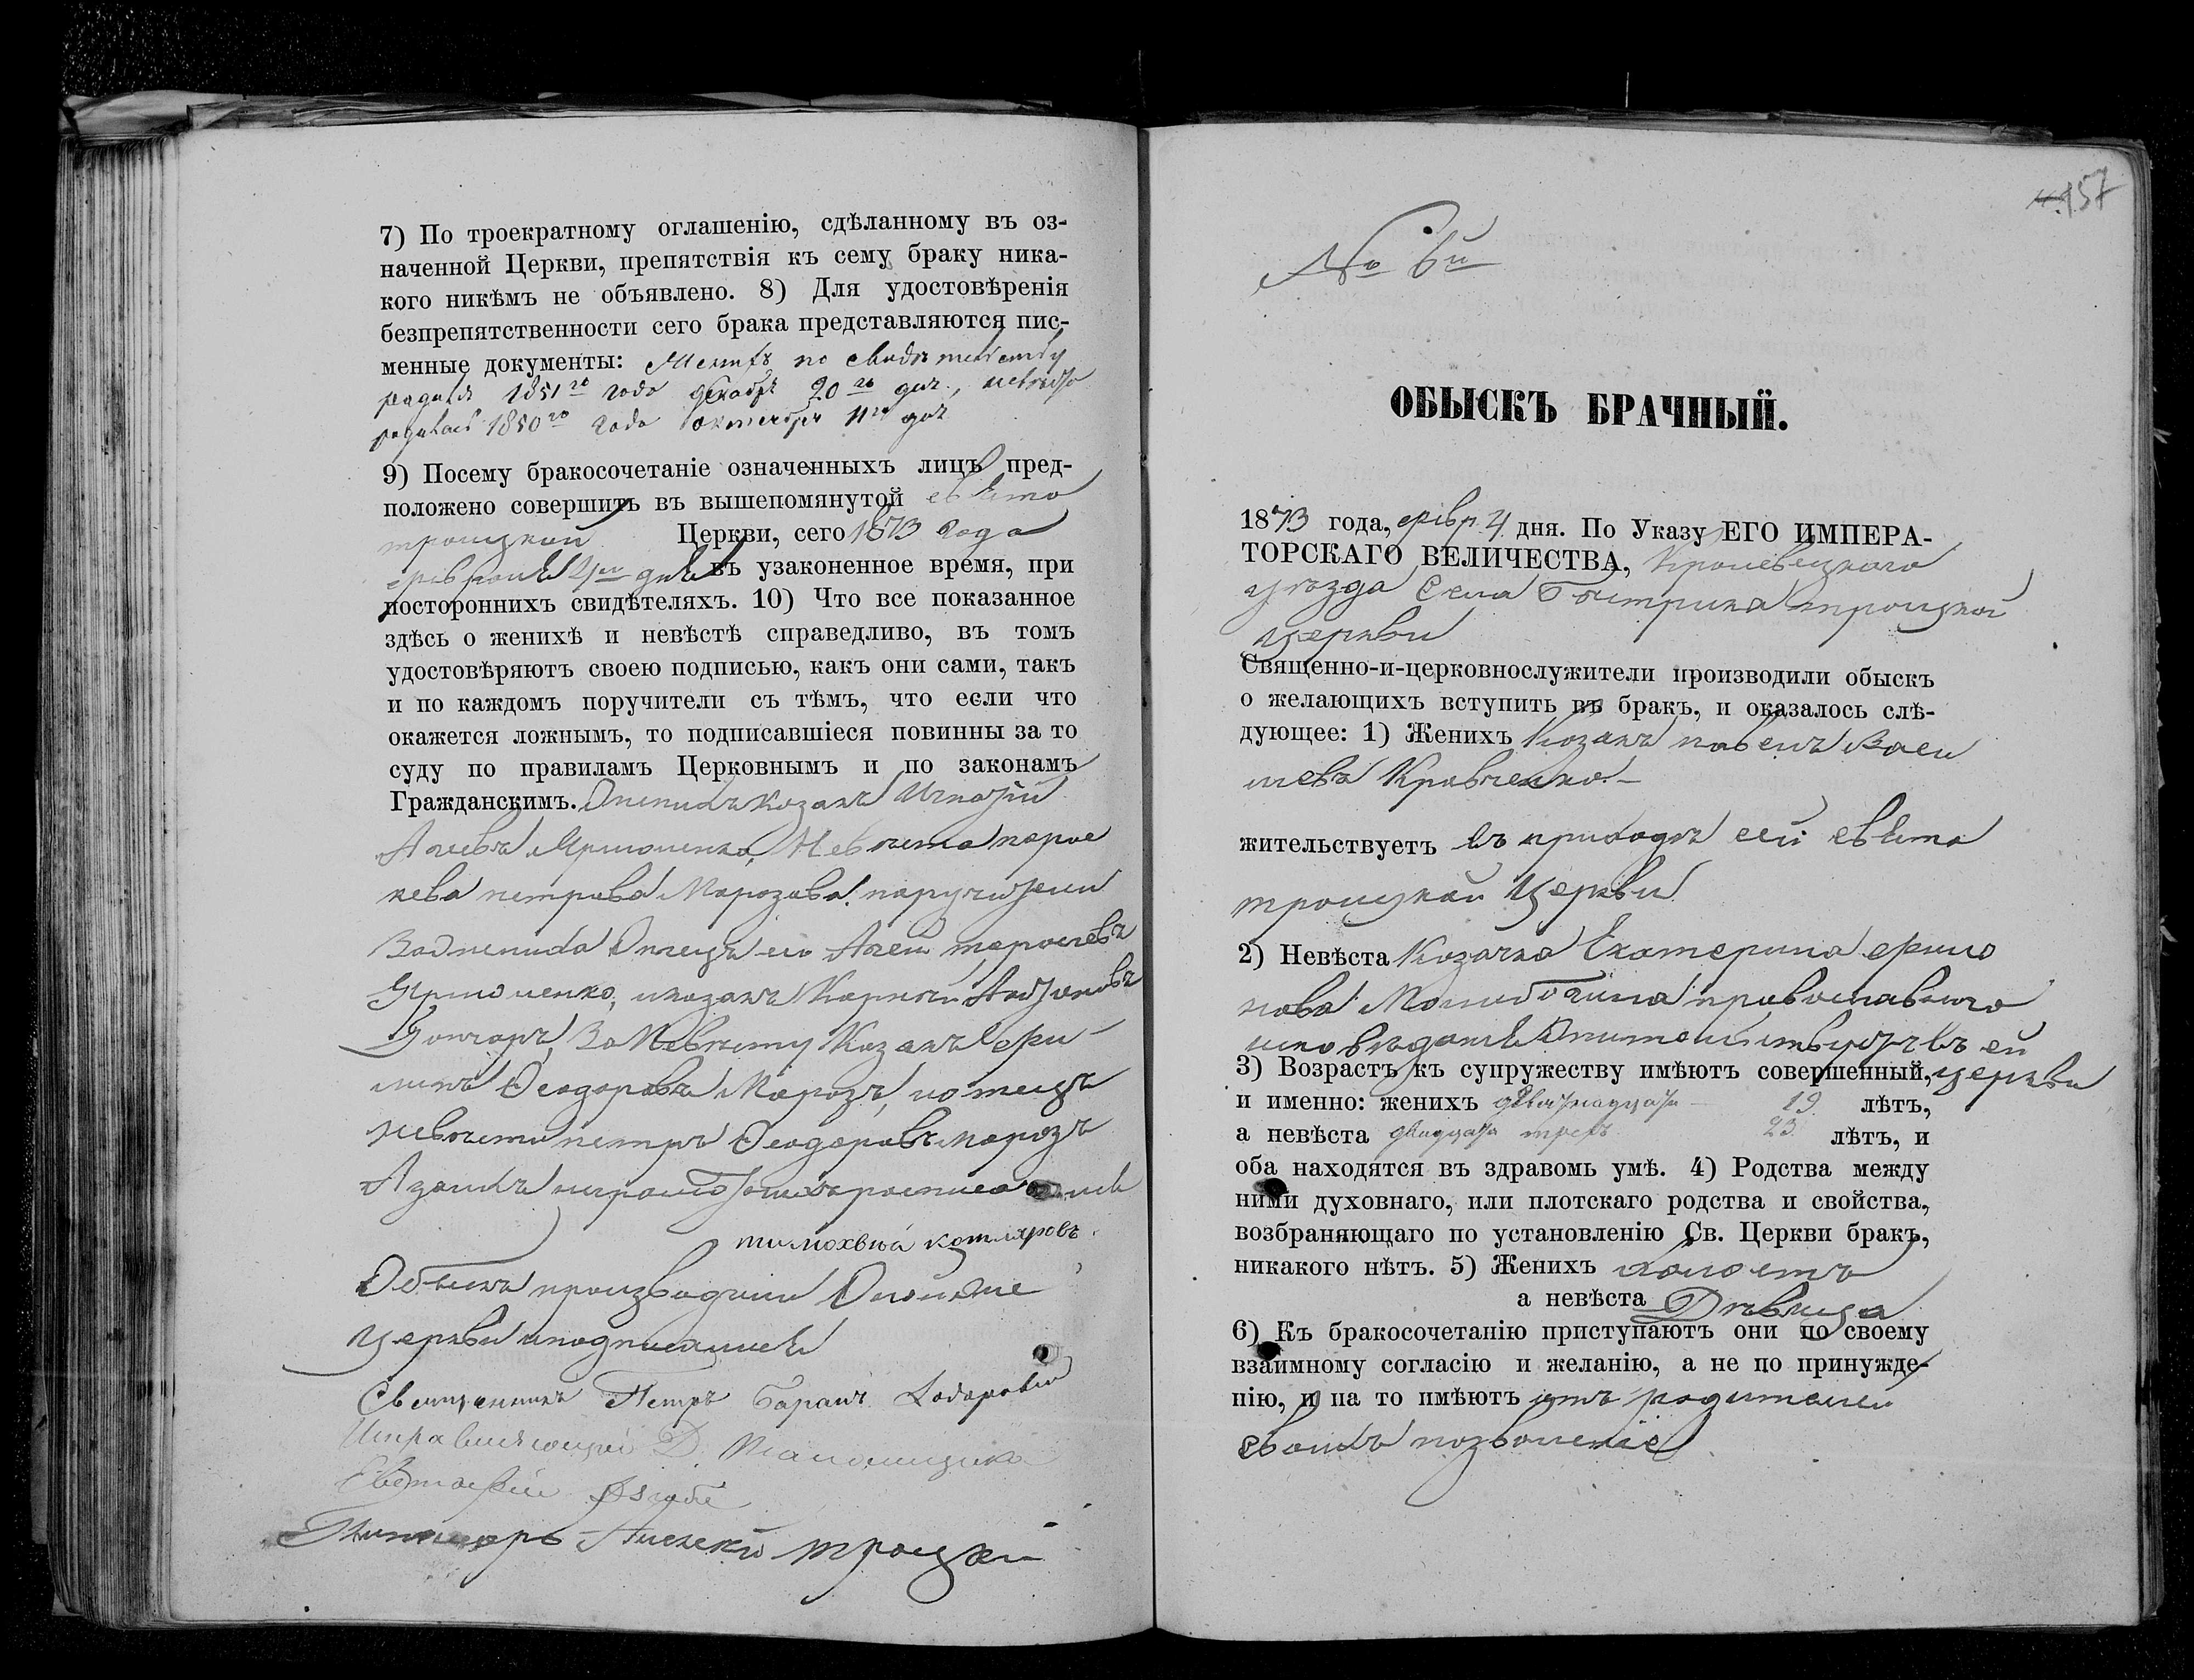 7) По троекратному оглашенію, сдѣланному въ оз-
наченной Церкви, препятствія къ сему браку ника-
кого никѣмъ не объявлено. 8) Для удостовѣренія
безпрепятственности сего брака представляются пис-
менные документы: Женихъ по свидѣтельству
родился 1851го года декабря 20го дня, невѣста
родилась 1850го года октября 11го дня
9) Посему бракосочетаніе означенныхъ лицъ пред-
положено совершить въ вышепомянутой свято
троицкой Церкви, сего 1873 года
февраля 4го дня въ узаконенное время, при
постороннихъ свидѣтеляхъ. 10) Что все показанное
здѣсь о женихѣ и невѣстѣ справедливо, въ томъ
удостовѣряютъ своею подписью, какъ они сами, такъ
и по каждомъ поручители съ тѣмъ, что если что
окажется ложнымъ, то подписавшіеся повинны за то
суду по правиламъ Церковнымъ и по законамъ
Гражданскимъ. Женихъ козакъ Игнатій
Ярмоленко, Невѣста парас
кева петрова Морозова поручители
За жениха Отецъ его
Ярмоленко, и козакъ Корней
Гончаръ, За Невѣсту Козакъ Фи
липъ Феодоровъ Морозъ, и отецъ
невѣсты петръ Феодоровъ морозъ
А за ихъ неграмотныхъ росписался
котляровъ
Обыскъ производили Оной же
Церкви и подписались
Священникъ Петръ
Исправляющій Д. Псаломщика
Евстафій
Пономарь Алексѣй Троцкій
157
№ 6й
ОБЫСКЪ БРАЧНЫЙ.
1873 года, февр. 4 дня. По Указу ЕГО ИМПЕРА-
ТОРСКАГО ВЕЛИЧЕСТВА, Кролевецкого
уѣзда Села Быстрика троицкой
церкви
Священно-и-церковнослужители производили обыскъ
о желающихъ вступить въ бракъ, и оказалось слѣ-
дующее: 1) Женихъ Козакъ павелъ Васи
лiевъ Кравченко
жительствуетъ въ приходѣ сей свято
троицкой Церкви
2) Невѣста Козачка Екатерина филю
нова православнаго
исповѣданія жительствуетъ въ сей
3) Возрастъ къ супружеству имѣютъ совершенный, церкви
и именно: женихъ девятнадцать 19 лѣтъ,
а невѣста двадцать трехъ 23 лѣтъ, и
оба находятся въ здравомъ умѣ. 4) Родства между
ними духовнаго, или плотскаго родства и свойства,
возбраняющаго по установленію Св. Церкви бракъ,
никакого нѣтъ. 5) Женихъ холостъ
а невѣста Дѣвица
6) Къ бракосочетанію приступаютъ они по своему
взаимному согласію и желанію, а не по принужде-
нію, и на то имѣютъ отъ родителей
своихъ позволеніе